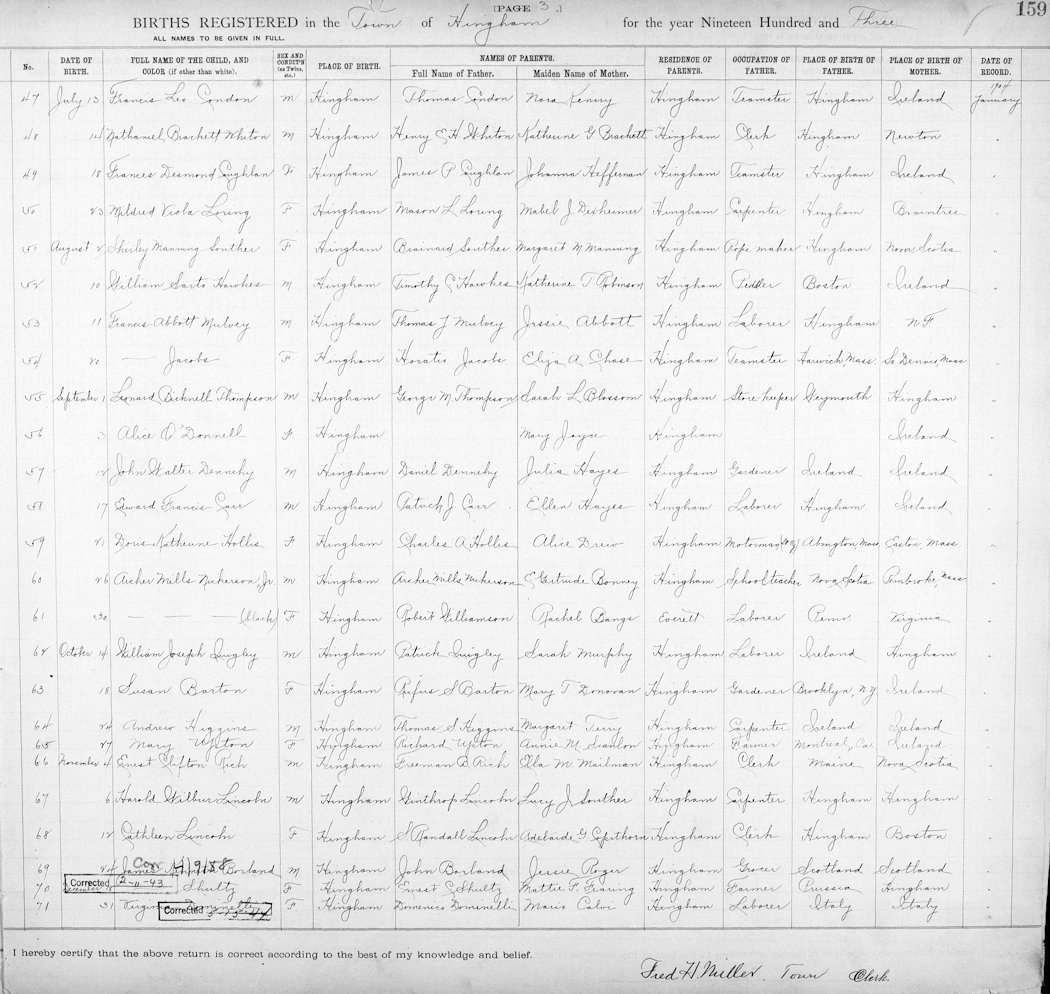 [PAGE 3 .] 159
BIRTHS REGISTERED in the Town of Hingham for the year Nineteen Hundred and Three
ALL NAMES TO BE GIVEN IN FULL.
No. DATE OF BIRTH. FULL NAME OF THE CHILD, AND COLOR (if other than white). SEX AND CONDIT'N (as Twins, etc.) PLACE OF BIRTH. NAMES OF PARENTS. Full Name of Father. Maiden Name of Mother. RESIDENCE OF PARENTS. OCCUPATION OF FATHER. PLACE OF BIRTH OF FATHER. PLACE OF BIRTH OF MOTHER. DATE OF RECORD.
47 July 13 Francis Leo Condon M Hingham Thomas Condon Nora Kenny Hingham Teamster Hingham Ireland 1904 January
48 14 Nathaniel Brackett Whiton M Hingham Henry E H Whiton Katherine G Brackett Hingham Clerk Hingham Newton "
49 18 Frances Desmond Coughlan F Hingham James P Coughlan Johanna Heffernan Hingham Teamster Hingham Ireland "
50 23 Mildred Viola Loring F Hingham Mason L Loring Mabel J Dexheimer Hingham Carpenter Hingham Braintree "
51 August 2 Shirley Manning Souther F Hingham Brainard Souther Margaret M Manning Hingham Rope maker Hingham Nova Scotia "
52 10 William Sarto Hawkes M Hingham Timothy C Hawkes Katherine T Robinson Hingham Peddler Boston Ireland "
53 11 Francis Abbott Mulvey M Hingham Thomas J Mulvey Jessie Abbott Hingham Laborer Hingham N F "
54 20 — Jacobs F Hingham Horatio Jacobs Eliza A Chase Hingham Teamster Harwich, Mass. So Dennis, Mass "
55 September 1 Leonard Bicknell Thompson M Hingham George M Thompson Sarah L Blossom Hingham Store-keeper Weymouth Hingham "
56 3 Alice O'Donnell F Hingham Mary Joyce Hingham Ireland "
57 12 John Walter Dennehy M Hingham Daniel Dennehy Julia Hayes Hingham Gardener Ireland Ireland "
58 17 Edward Francis Carr M Hingham Patrick J Carr Ellen Hayes Hingham Laborer Hingham Ireland "
59 21 Doris Katherine Hollis F Hingham Charles A Hollis Alice Drew Hingham Motorman Abington, Mass Easton Mass "
60 26 Archer Mills Nickerson Jr. M Hingham Archer Mills Nickerson E Gertrude Bonney Hingham School teacher Nova Scotia Pembroke, Mass "
61 30 — — — (black) F Hingham Robert Williamson Rachel Bangs Everett Laborer Penn Virginia "
62 October 14 William Joseph Quigley M Hingham Patrick Quigley Sarah Murphy Hingham Laborer Ireland Hingham "
63 18 Susan Barton F Hingham Rufus S Barton Mary T Donovan Hingham Gardener Brooklyn, N.Y Ireland "
64 24 Andrew Higgins M Hingham Thomas S Higgins Margaret Terry Hingham Carpenter Ireland Ireland "
65 27 Mary Upton F Hingham Richard Upton Annie M Scanlon Hingham Farmer Montreal, Ca. Ireland "
66 November 4 Ernest Clifton Rich M Hingham Freeman B Rich Ella M. Mailman Hingham Clerk Maine Nova Scotia "
67 6 Harold Wilbur Lincoln M Hingham Winthrop Lincoln Lucy J Souther Hingham Carpenter Hingham Hingham "
68 12 Cathleen Lincoln F Hingham S Randall Lincoln Adelaide G Copithorn Hingham Clerk Hingham Boston "
Cor 4/9/58
69 24 James Borland M Hingham John Borland Jessie Roger Hingham Grocer Scotland Scotland "
Corrected 2-11-43
70 December Shultz F Hingham Ernest C Shultz Mattie F Fearing Hingham Farmer Prussia Hingham "
71 31 Virginia Domenelli F Hingham Domenico Domenelli Maria Calvi Hingham Laborer Italy Italy "
Corrected
I hereby certify that the above return is correct according to the best of my knowledge and belief.
Fred H. Miller, Town Clerk.